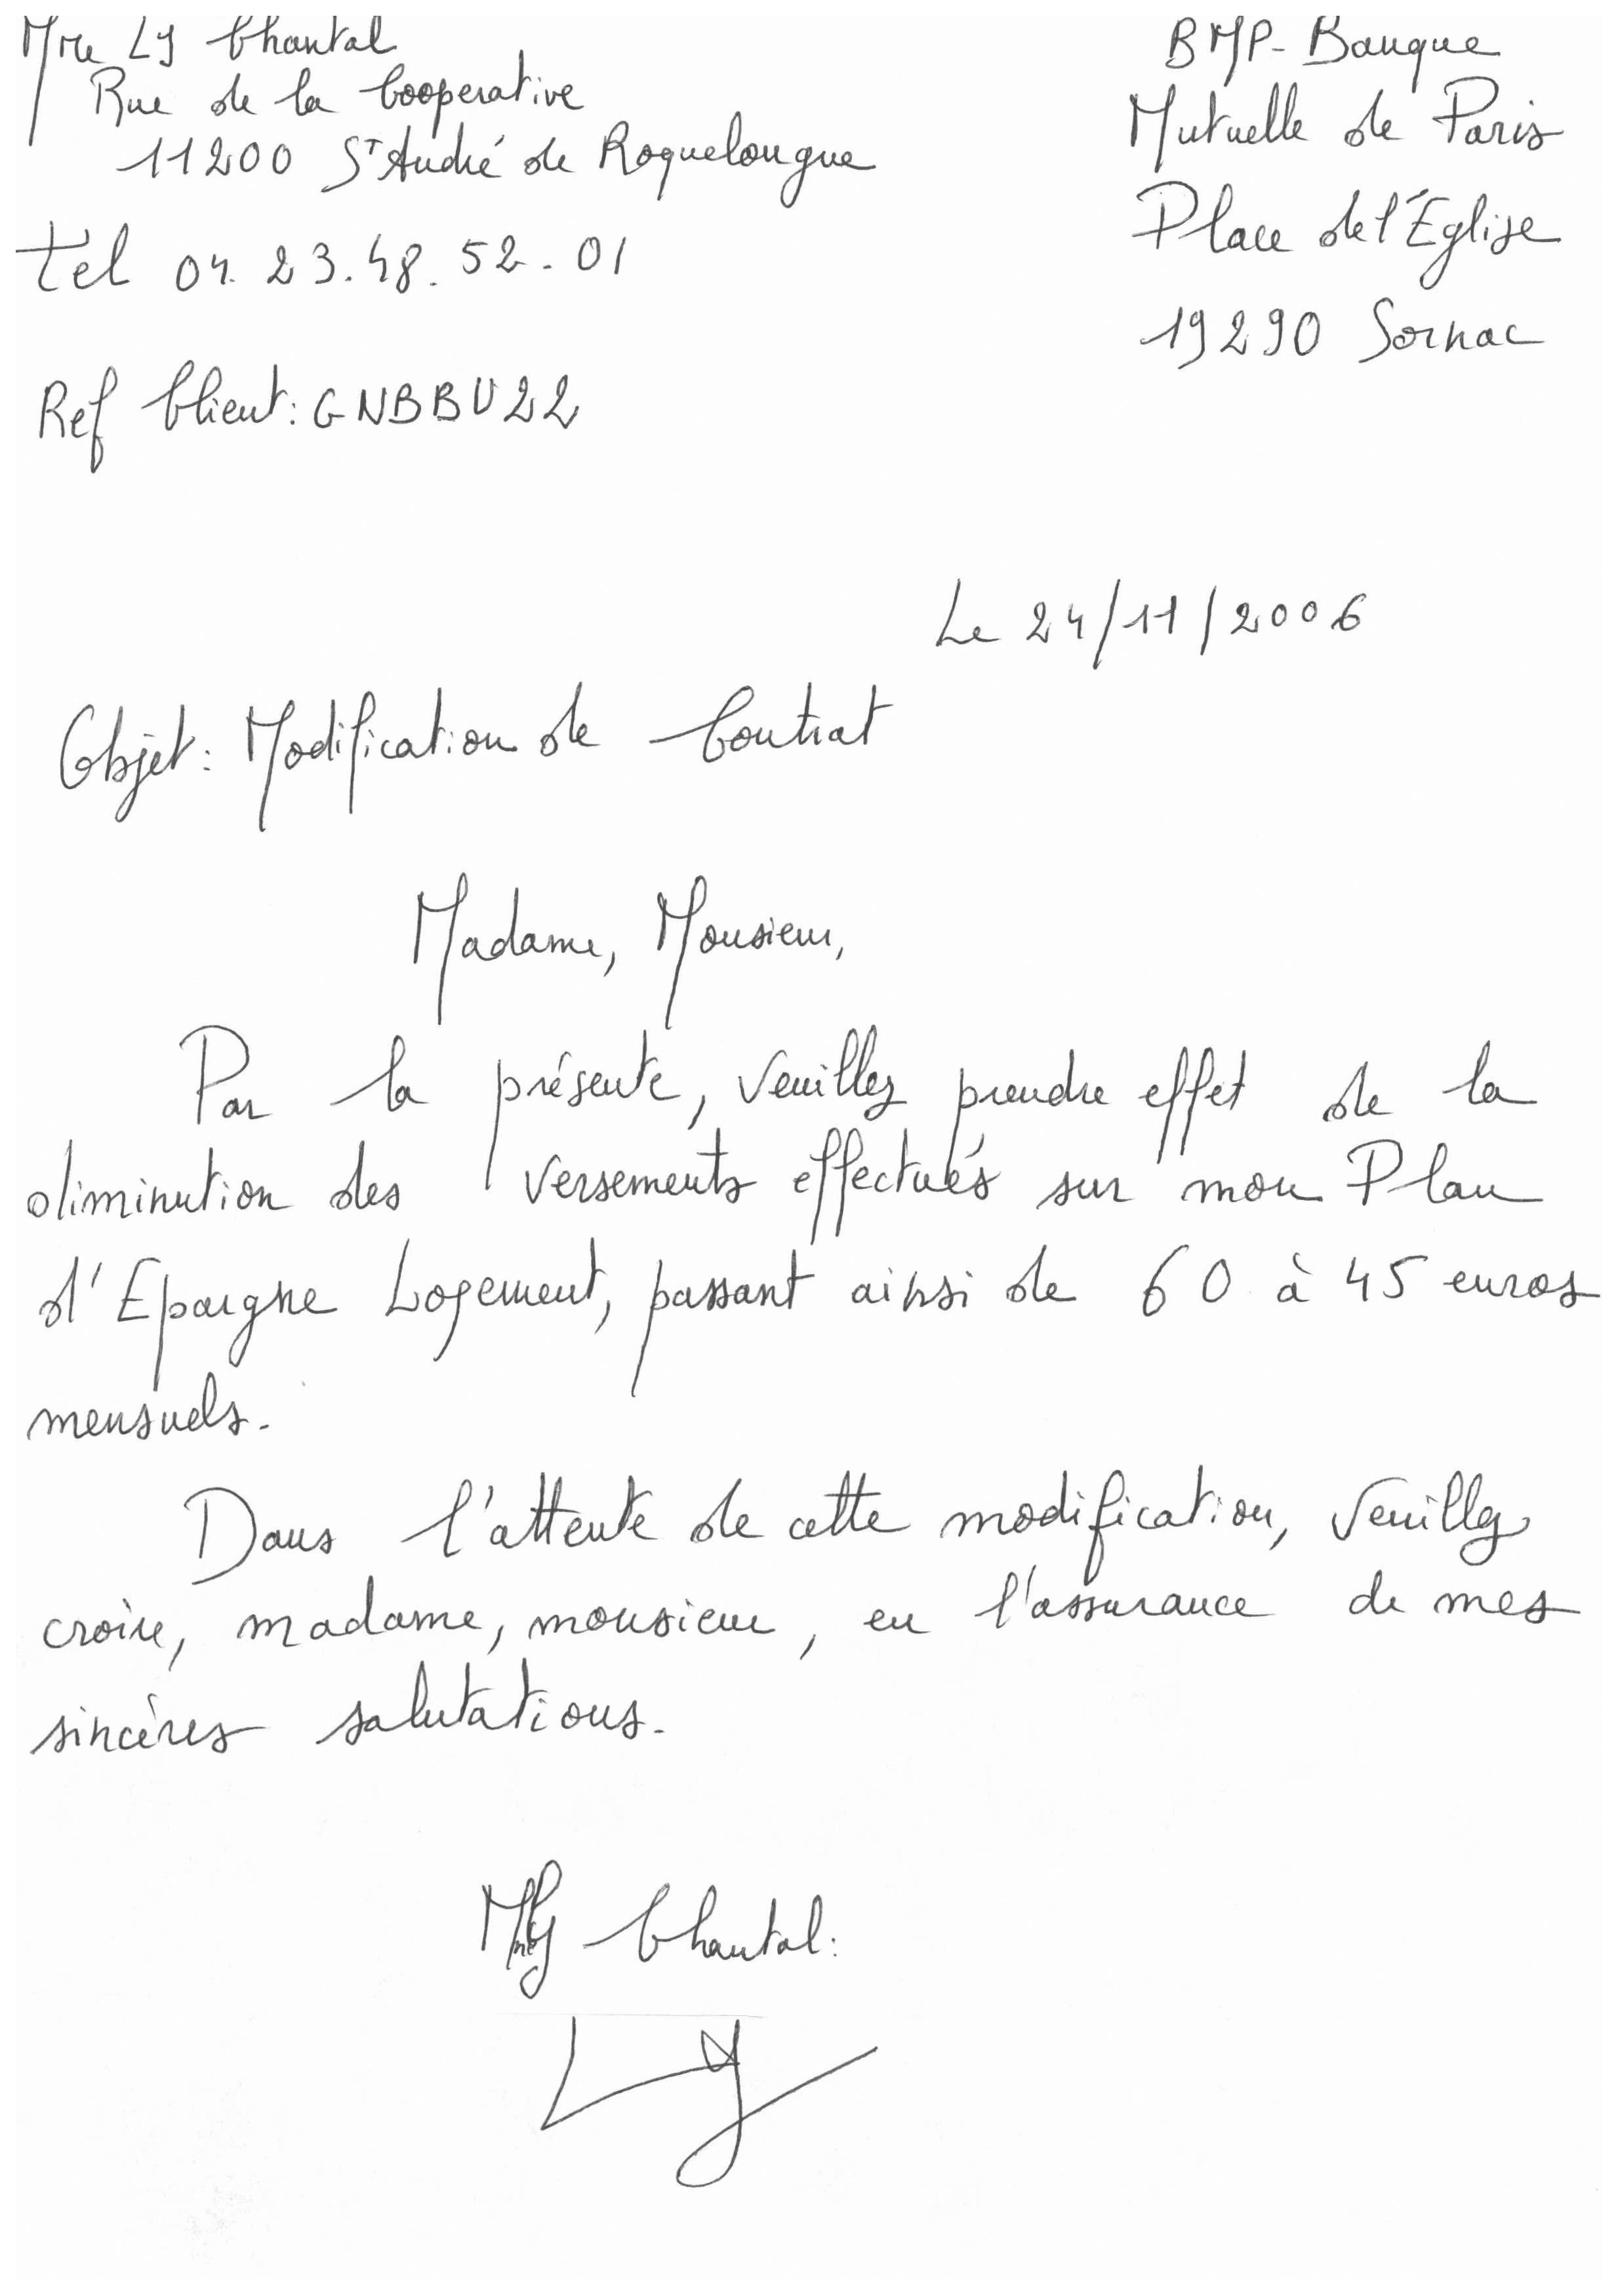 Mme LY Chantal
Rue de la Cooperative
11200 St André de Roquelongue
Tel 04.23.48.52.01
Ref Client: GNBBU22
BMP-Banque
Mutuelle de Paris
Place de l'Église
19290 Sornac
Le 24/11/2006
Objet: Modification de Contrat
Madame, Monsieur,
Par la présente, veuillez prendre effet de la
diminution des versements effectués sur mon Plan
d'Epargne Logement, passant ainsi de 60 à 45 euros
mensuels.
Dans l'attente de cette modification, veuillez
croire, madame, monsieur, en l'assurance de mes
sincères salutations.
Mme LY Chantal:
LY